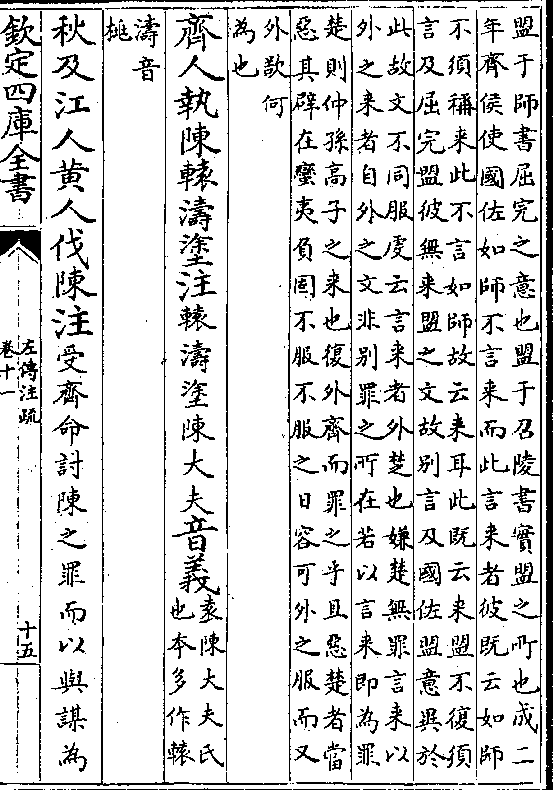 盟于師書屈完之意也盟于召陵書實盟之所也成二
年齊侯使國佐如師不言来而此言来者彼既云如師
不須稱来此不言如師故云来耳此既云来盟不復須
言及屈完盟彼無来盟之文故别言及國佐盟意異於
此故文不同服虔云言来者外楚也嫌楚無罪言来以
外之来者自外之文非别罪之所在若以言来即為罪
楚則仲孫高子之来也復外齊而罪之乎且惡楚者當
惡其辟在蠻夷負固不服不服之日容可外之服而又
外歟何
為也
齊人執陳轅濤塗注轅濤塗陳大夫音義袁陳大夫氏
也本多作轅
濤音
桃
秋及江人黄人伐陳注受齊命討陳之罪而以與謀為
欽定四庫全書
左傳注疏
卷十一
十五